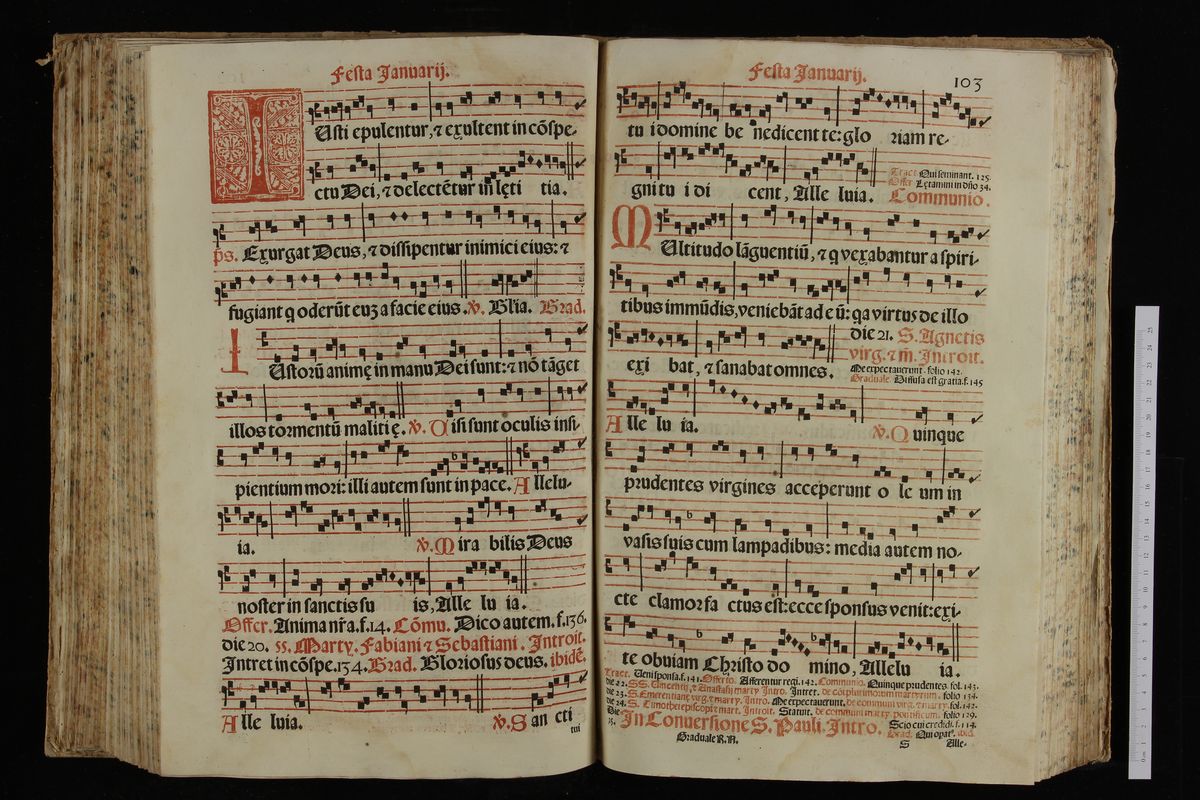 Festa Januarij.
IUsti epulentur, ⁊ exultent in cõspe-
ctu Dei, ⁊ delectẽtur in lęti tia.
ps. Exurgat Deus, ⁊ dissipentur inimici eius: ⁊
fugiant q oderũt euʒ a facie eius. ℣. Gl'ia. Grad.
IUstorũ animę in manu Dei sunt: ⁊ nõ tãget
illos tormentũ maliti ę. ℣. Uisi sunt oculis insi-
pientium mori: illi autem sunt in pace. Allelu-
ia. ℣. Mira bilis Deus
noster in sanctis su is, Alle lu ia.
Offer. Anima nr̃a. f. 14. Cõmu. Dico autem. f. 136.
die 20. SS. Marty. Fabiani ⁊ Sebastiani. Introit.
Intret in cõspe. 134. Grad. Gloriosus deus. ibidẽ.
Alle luia. ℣. San cti
tui
Festa Januarij. 103
tu i domine be nedicent te: glo riam re-
gni tu i di cent, Alle luia.
Tract. Qui seminant. 125.
Offer. Lętamini in dño 34.
Communio.
MUltitudo lãguentiũ, ⁊ q vexabantur a spiri-
tibus immũdis, veniebãt ad e ũ: qa virtus de illo
exi bat, ⁊ sanabat omnes.
die 21. S. Agnetis
virg. ⁊ m̃. Introit.
Me expectauerunt. folio 142.
Graduale Diffusa est gratia. f. 145
Alle lu ia. ℣. Quinque
prudentes virgines acceperunt o le um in
vasis suis cum lampadibus: media autem no-
cte clamor fa ctus est: ecce sponsus venit: exi-
te obuiam Christo do mino, Allelu ia.
Tract. Ueni sponsa. f. 141. Offerto. Afferentur regi. 142. Communio. Quinque prudentes. fol. 143.
die 22. SS. Vincentij, ⁊ Anastasij marty. Intro. Intret. de cõi plurimorum martyrum. folio 134.
die 23. S. Emerentianę virg. ⁊ marty. Intro. Me expectauerunt. de communi virg. ⁊ marty. fol. 142.
die 24. S. Timothei episcopi ⁊ mart. Introit. Statuit. de communi marty. pontificum. folio 129.
Die 25. In Conuersione S. Pauli. Intro. Scio cui credidi. f. 114.
Grad. Qui opat'. ibid.
Graduale R. N. S Alle-